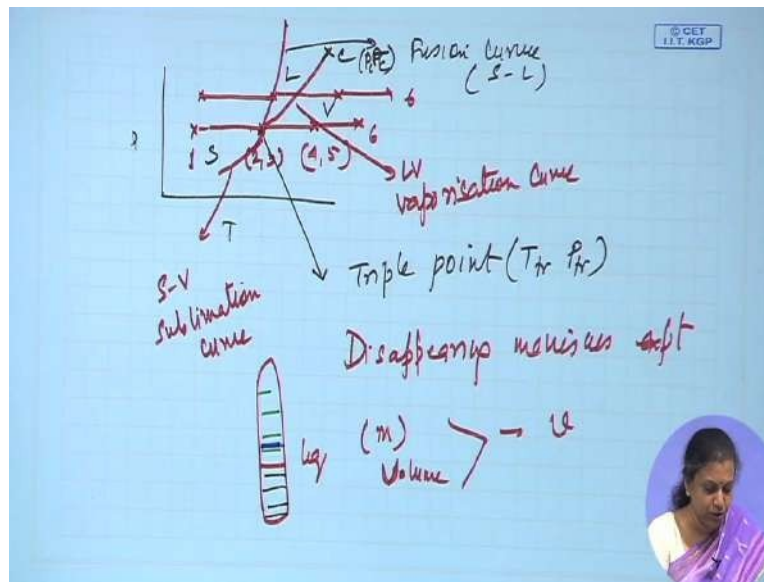 © CET
I.I.T. KGP
C
Fusion Curve
(S-L)
L
V
6
1
S
(2,3)
(4,5)
6
LV
vaporisation curve
T
S-V
sublimation
curve
Triple point (Ttr Ptr)
Disappearing meniscus expt
liq
(m)
Volume
v